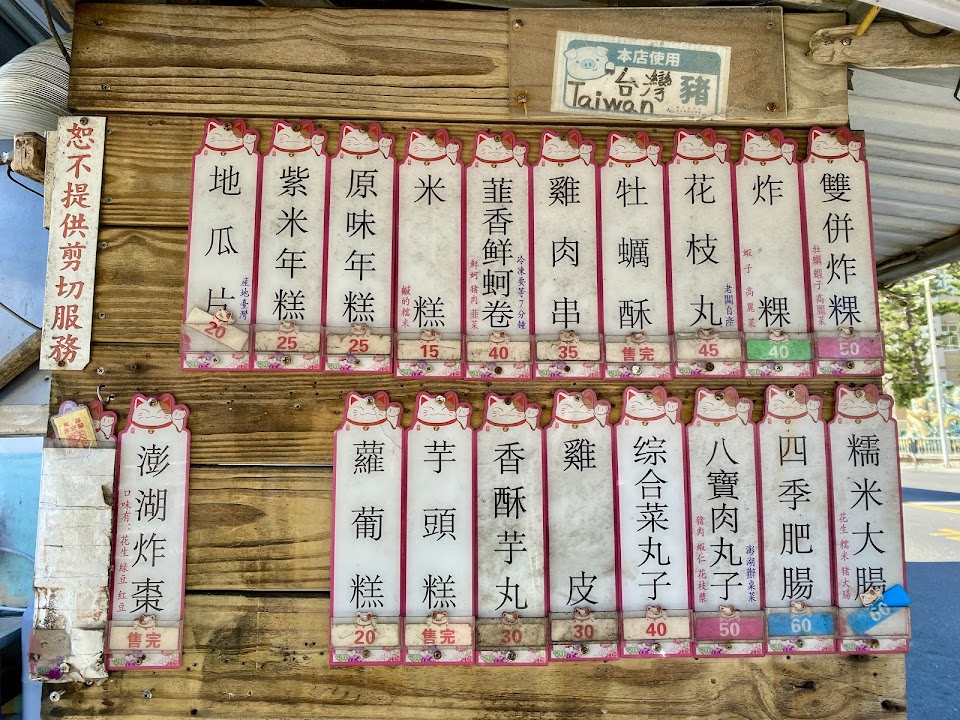 本店使用
台灣
Taiwan
豬
恕不提供剪切服務
雙併炸粿
牡蠣 蝦子 高麗菜
50
炸粿
蝦子 高麗菜
40
花枝丸
老闆自產
45
牡蠣酥
售完
雞肉串
35
韮香鮮蚵卷
冷凍要等7分鐘
鮮蚵 豬肉 韮菜
40
米糕
鹹的糯米
15
原味年糕
25
紫米年糕
25
地瓜片
產地臺灣
20
糯米大腸
花生 糯米 豬大腸
60
四季肥腸
60
八寶肉丸子
澎湖辦桌菜
豬肉 蝦仁 花枝漿
50
综合菜丸子
40
雞皮
30
香酥芋丸
30
芋頭糕
售完
蘿蔔糕
20
澎湖炸棗
口味有 花生 綠豆 紅豆
售完